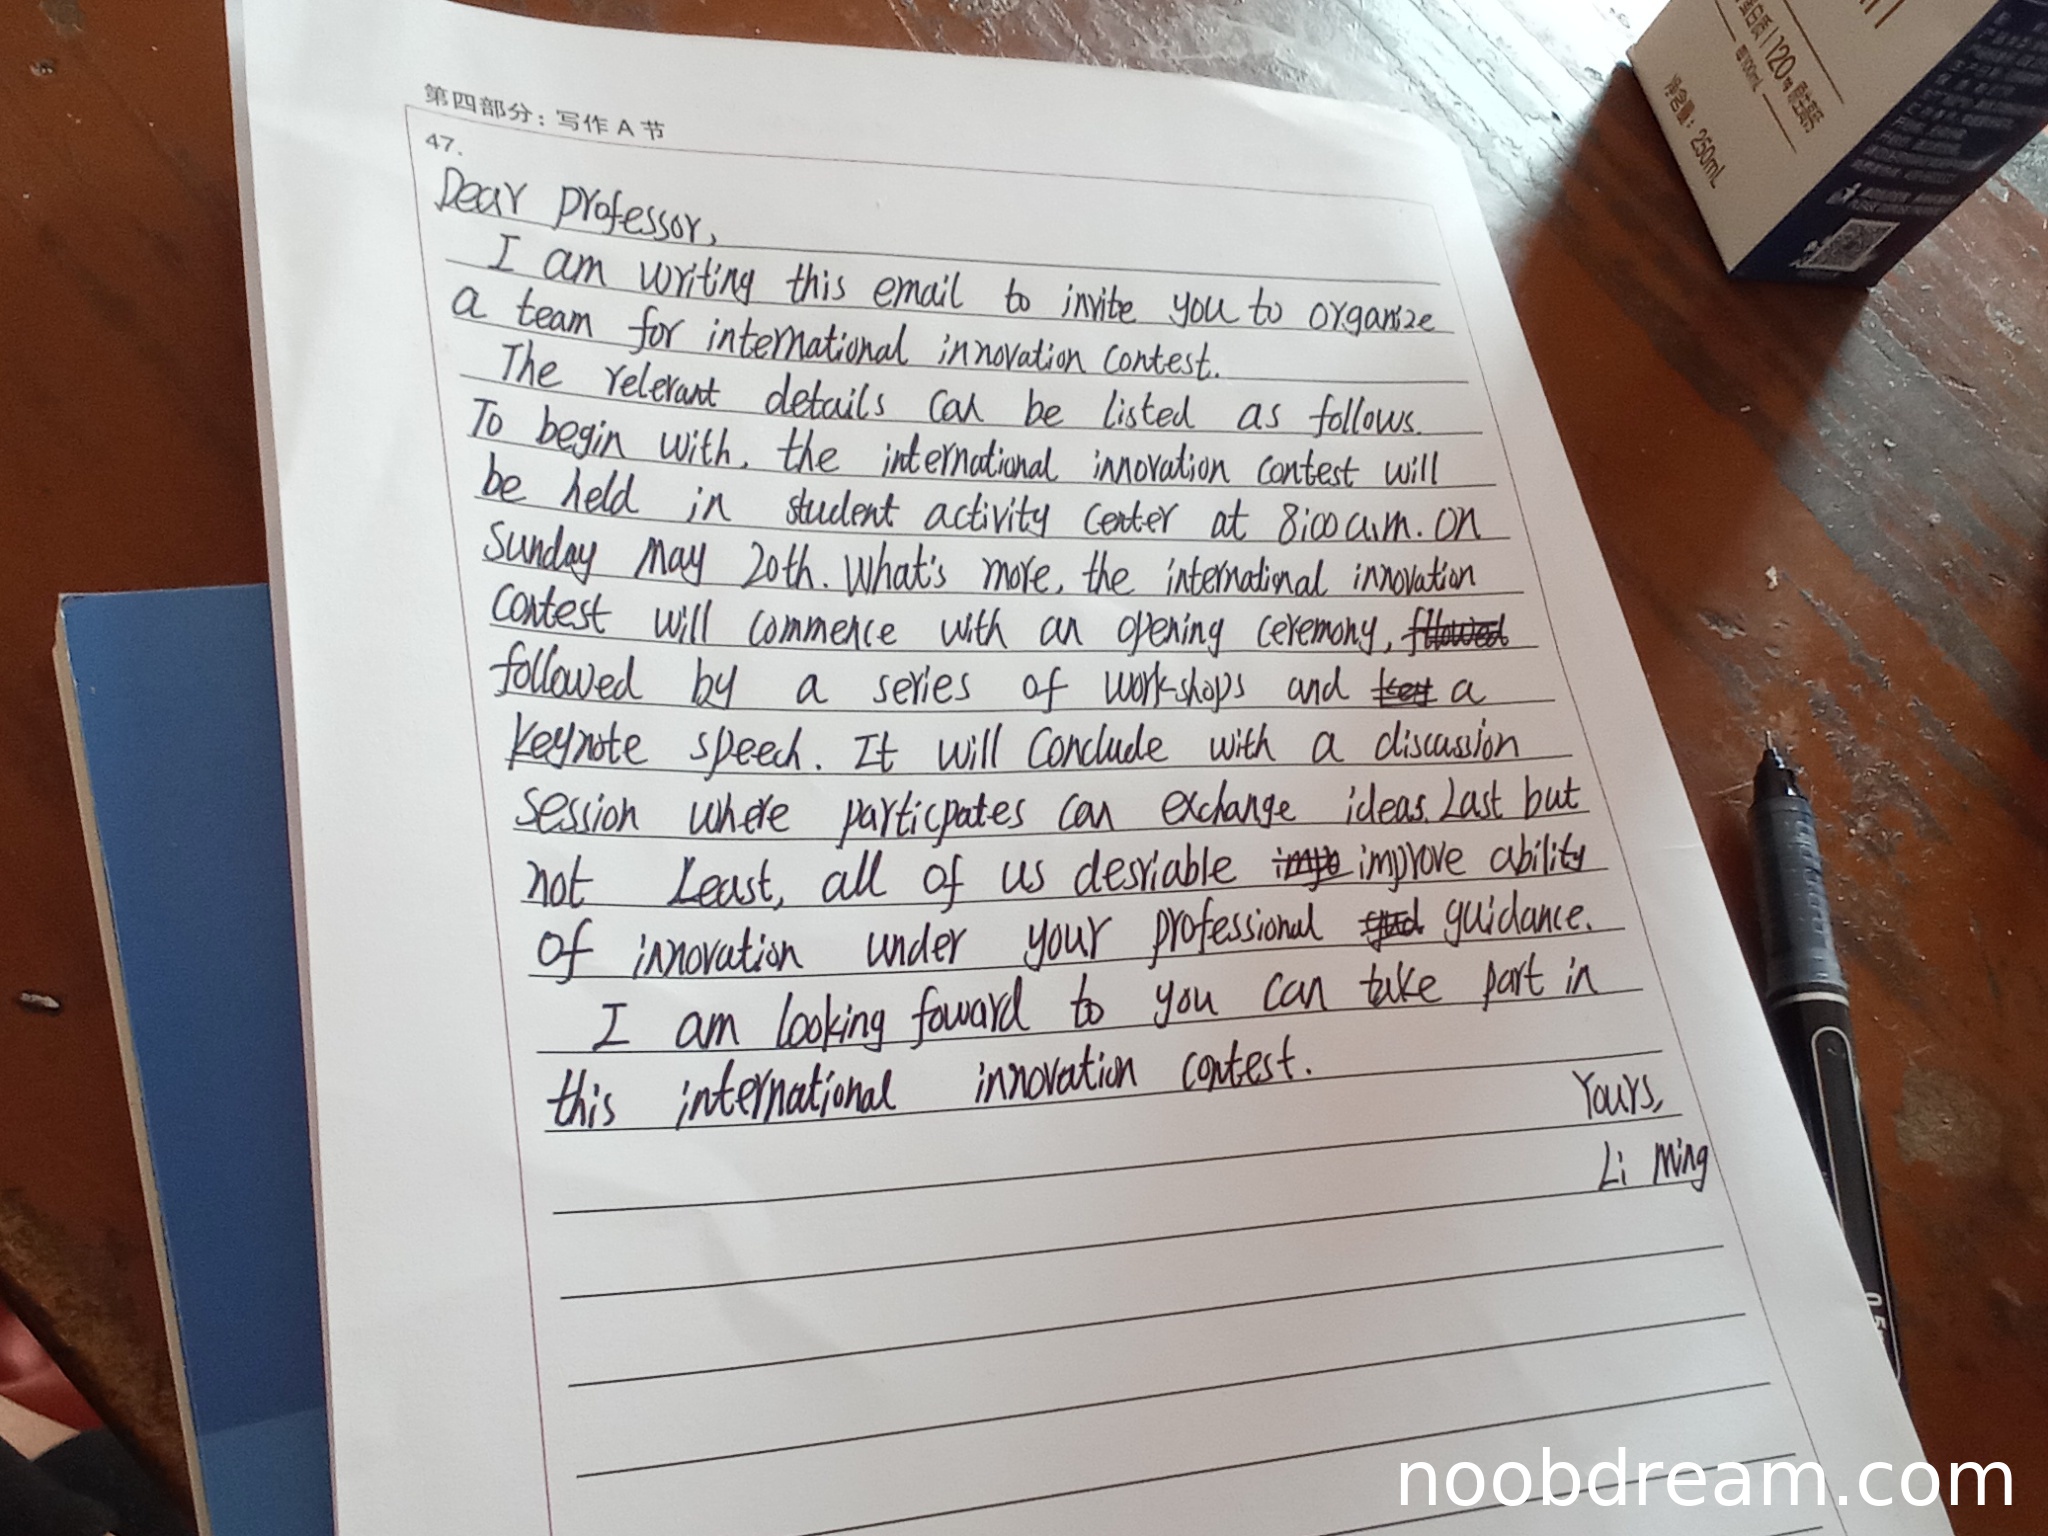 第四部分：写作 A 节
47.
Dear professor,
I am writing this email to invite you to organize
a team for international innovation contest.
The relevant details can be listed as follows.
To begin with, the international innovation contest will
be held in student activity center at 8:00 a.m. on
Sunday May 20th. What's more, the international innovation
contest will commence with an opening ceremony,
followed by a series of work-shops and a
keynote speech. It will conclude with a discussion
session where particpates can exchange ideas. Last but
not Least, all of us desriable improve ability
of innovation under your professional guidance.
I am looking foward to you can take part in
this international innovation contest.
Yours,
Li Ming
120mg 原生高钙
每100mL
净含量：250mL
0.5
noobdream.com